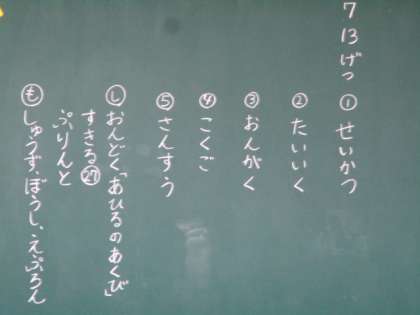 7 13 げつ
① せいかつ
② たいいく
③ おんがく
④ こくご
⑤ さんすう
し おんどく「あひるのあくび」
すきる27
ぷりんと
も しゅうず、ぼうし、えぷろん